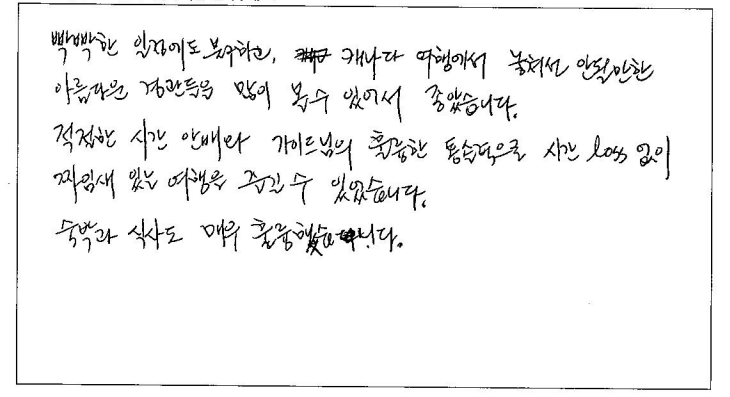 빡빡한 일정에도 불구하고, 캐나다 여행에서 놓쳐선 안될만한
아름다운 경관들을 많이 볼 수 있어서 좋았습니다.
적절한 시간 안배와 가이드님의 훌륭한 통솔력으로 시간 loss 없이
짜임새 있는 여행을 즐길 수 있었습니다.
숙박과 식사도 매우 훌륭했습니다.